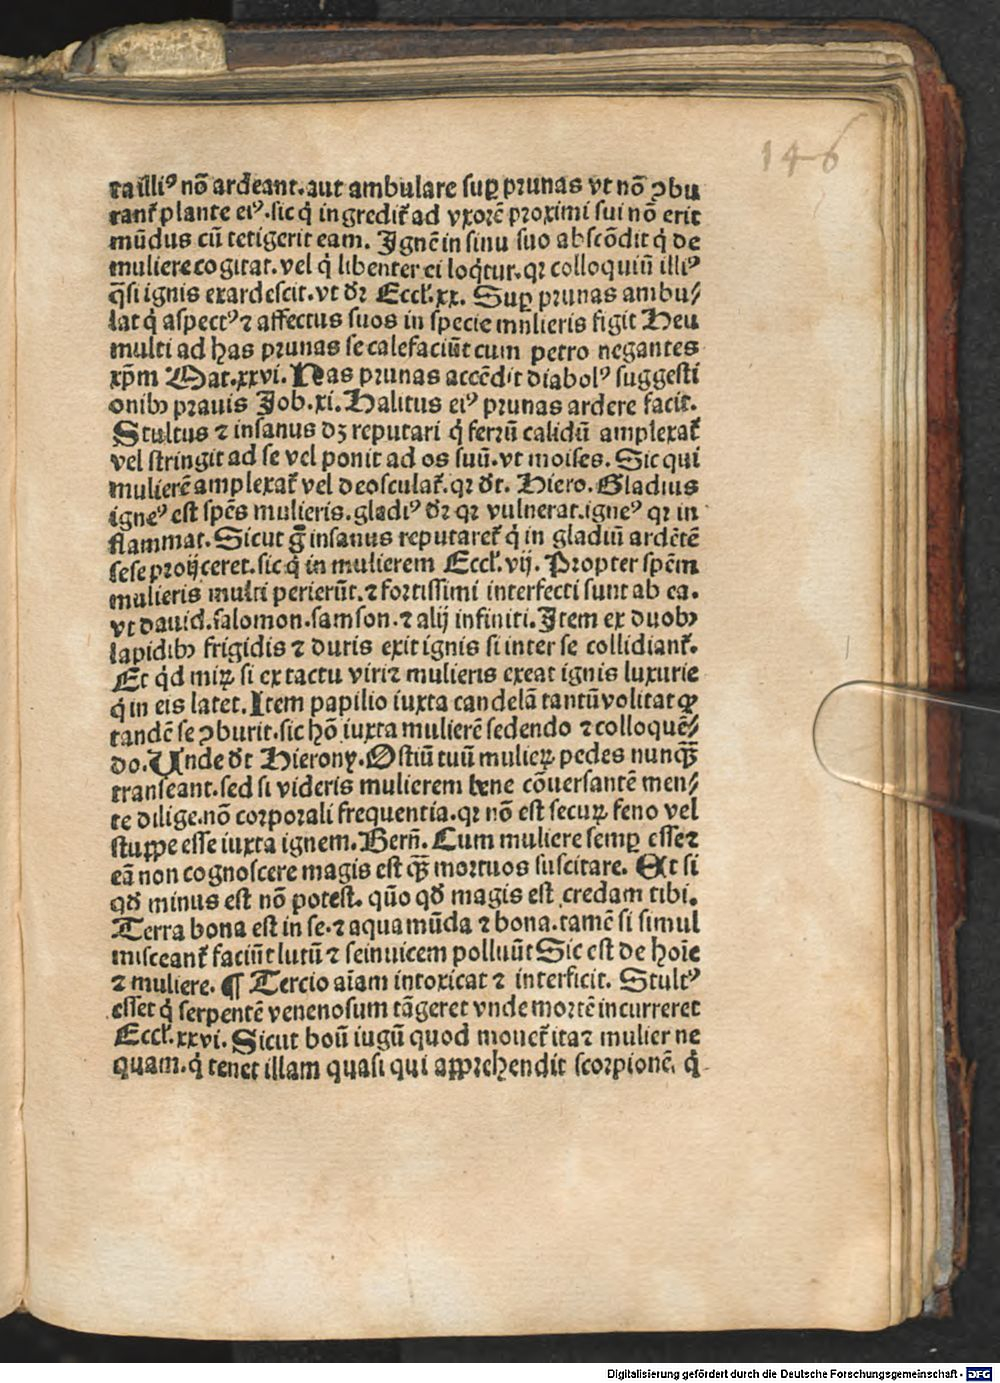 146
ta illiꝰ nō ardeant. aut ambulare suꝑ prunas vt nō ↄbu
rant᷑ plante eiꝰ. sic q̇ ingredit᷑ ad vxorē proximi sui nō erit
mūdus cū tetigerit eam. Ignē in sinu suo abscōdit q̇ de
muliere cogitat. vel q̇ libenter ei loq̇tur. qꝛ colloquiū illiꝰ
q̄si ignis exardescit. vt dꝛ Eccĺ. xx. Suꝑ prunas ambu⸗
lat q̇ aspectꝰ ⁊ affectus suos in specie mulieris figit Heu
multi ad has prunas se calefaciūt cum petro negantes
xp̄m Mat. xxvi. Has prunas accēdit diabolꝰ suggesti
onibꝫ prauis Job. xi. Halitus eiꝰ prunas ardere facit.
Stultus ⁊ insanus dꝫ reputari q̇ ferrū calidū amplexat᷑
vel stringit ad se vel ponit ad os suū. vt moises. Sic qui
mulierē amplexat᷑ vel deosculat᷑. qꝛ dt̄. Hiero. Gladius
igneꝰ est sp̄es mulieris. gladiꝰ dꝛ qꝛ vulnerat. igneꝰ qꝛ in
flammat. Sicut g̊ insanus reputaret᷑ q̇ in gladiū ardētē
sese proijceret. sic q̇ in mulierem Eccĺ. vij. Propter sp̄em
mulieris multi perierūt. ⁊ fortissimi interfecti sunt ab ea.
vt dauid. salomon. samson. ⁊ alij infiniti. Item ex duobꝫ
lapidibꝫ frigidis ⁊ duris exit ignis si inter se collidiant᷑.
Et q̇d miꝝ si ex tactu viri ⁊ mulieris exeat ignis luxurie
q̇ in eis latet. Item papilio iuxta candelā tantū volitat ꝙ
tandē se ↄburit. sic hō iuxta mulierē sedendo ⁊ colloquē⸗
do. Unde dt̄ Hieronꝝ. Ostiū tuū mulieꝝ pedes nunqꝫ̄
transeant. sed si videris mulierem bene cōuersantē men⸗
te dilige. nō corporali frequentia. qꝛ nō est secuꝝ feno vel
stuppe esse iuxta ignem. Berñ. Cum muliere semꝑ esse ⁊
eā non cognoscere magis est qꝫ̄ mortuos suscitare. Et si
qđ minus est nō potest. quō qđ magis est credam tibi.
Terra bona est in se. ⁊ aqua mūda ⁊ bona. tamē si simul
misceant᷑ faciūt lutū ⁊ seinuicem polluūt Sic est de hoīe
⁊ muliere. ¶ Tercio aīam intoxicat ⁊ interficit. Stultꝰ
esset q̇ serpentē venenosum tāgeret vnde mortē incurreret
Eccĺ. xxvi. Sicut boū iugū quod mouet᷑ ita ⁊ mulier ne
quam. q̇ tenet illam quasi qui apprehendit scorpionē. q̇
Digitalisierung gefördert durch die Deutsche Forschungsgemeinschaft - DFG